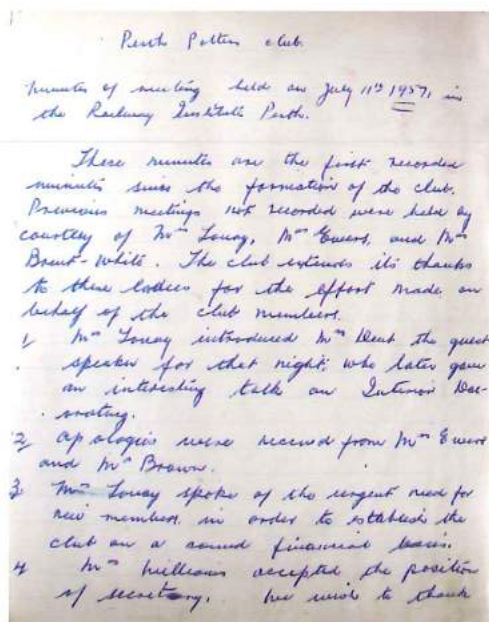 Perth Potters club.
Minutes of meeting held on July 11th 1957, in
the Railway Institute Perth.
These minutes are the first recorded
minutes since the formation of the club.
Previous meetings not recorded were held by
courtesy of Mrs , Mrs Ewers, and Mrs
Brent-White. The club extends its thanks
to these ladies for the effort made on
behalf of the club members.
1 Mrs introduced Mrs Dent the guest
speaker for that night, who later gave
an interesting talk on Interior Dec-
orating.
2 Apologies were received from Mrs Ewers
and Mrs Brown.
3 Mrs spoke of the urgent need for
new members, in order to establish the
club on a sound financial basis.
4 Mrs Williams accepted the position
of secretary. We wish to thank